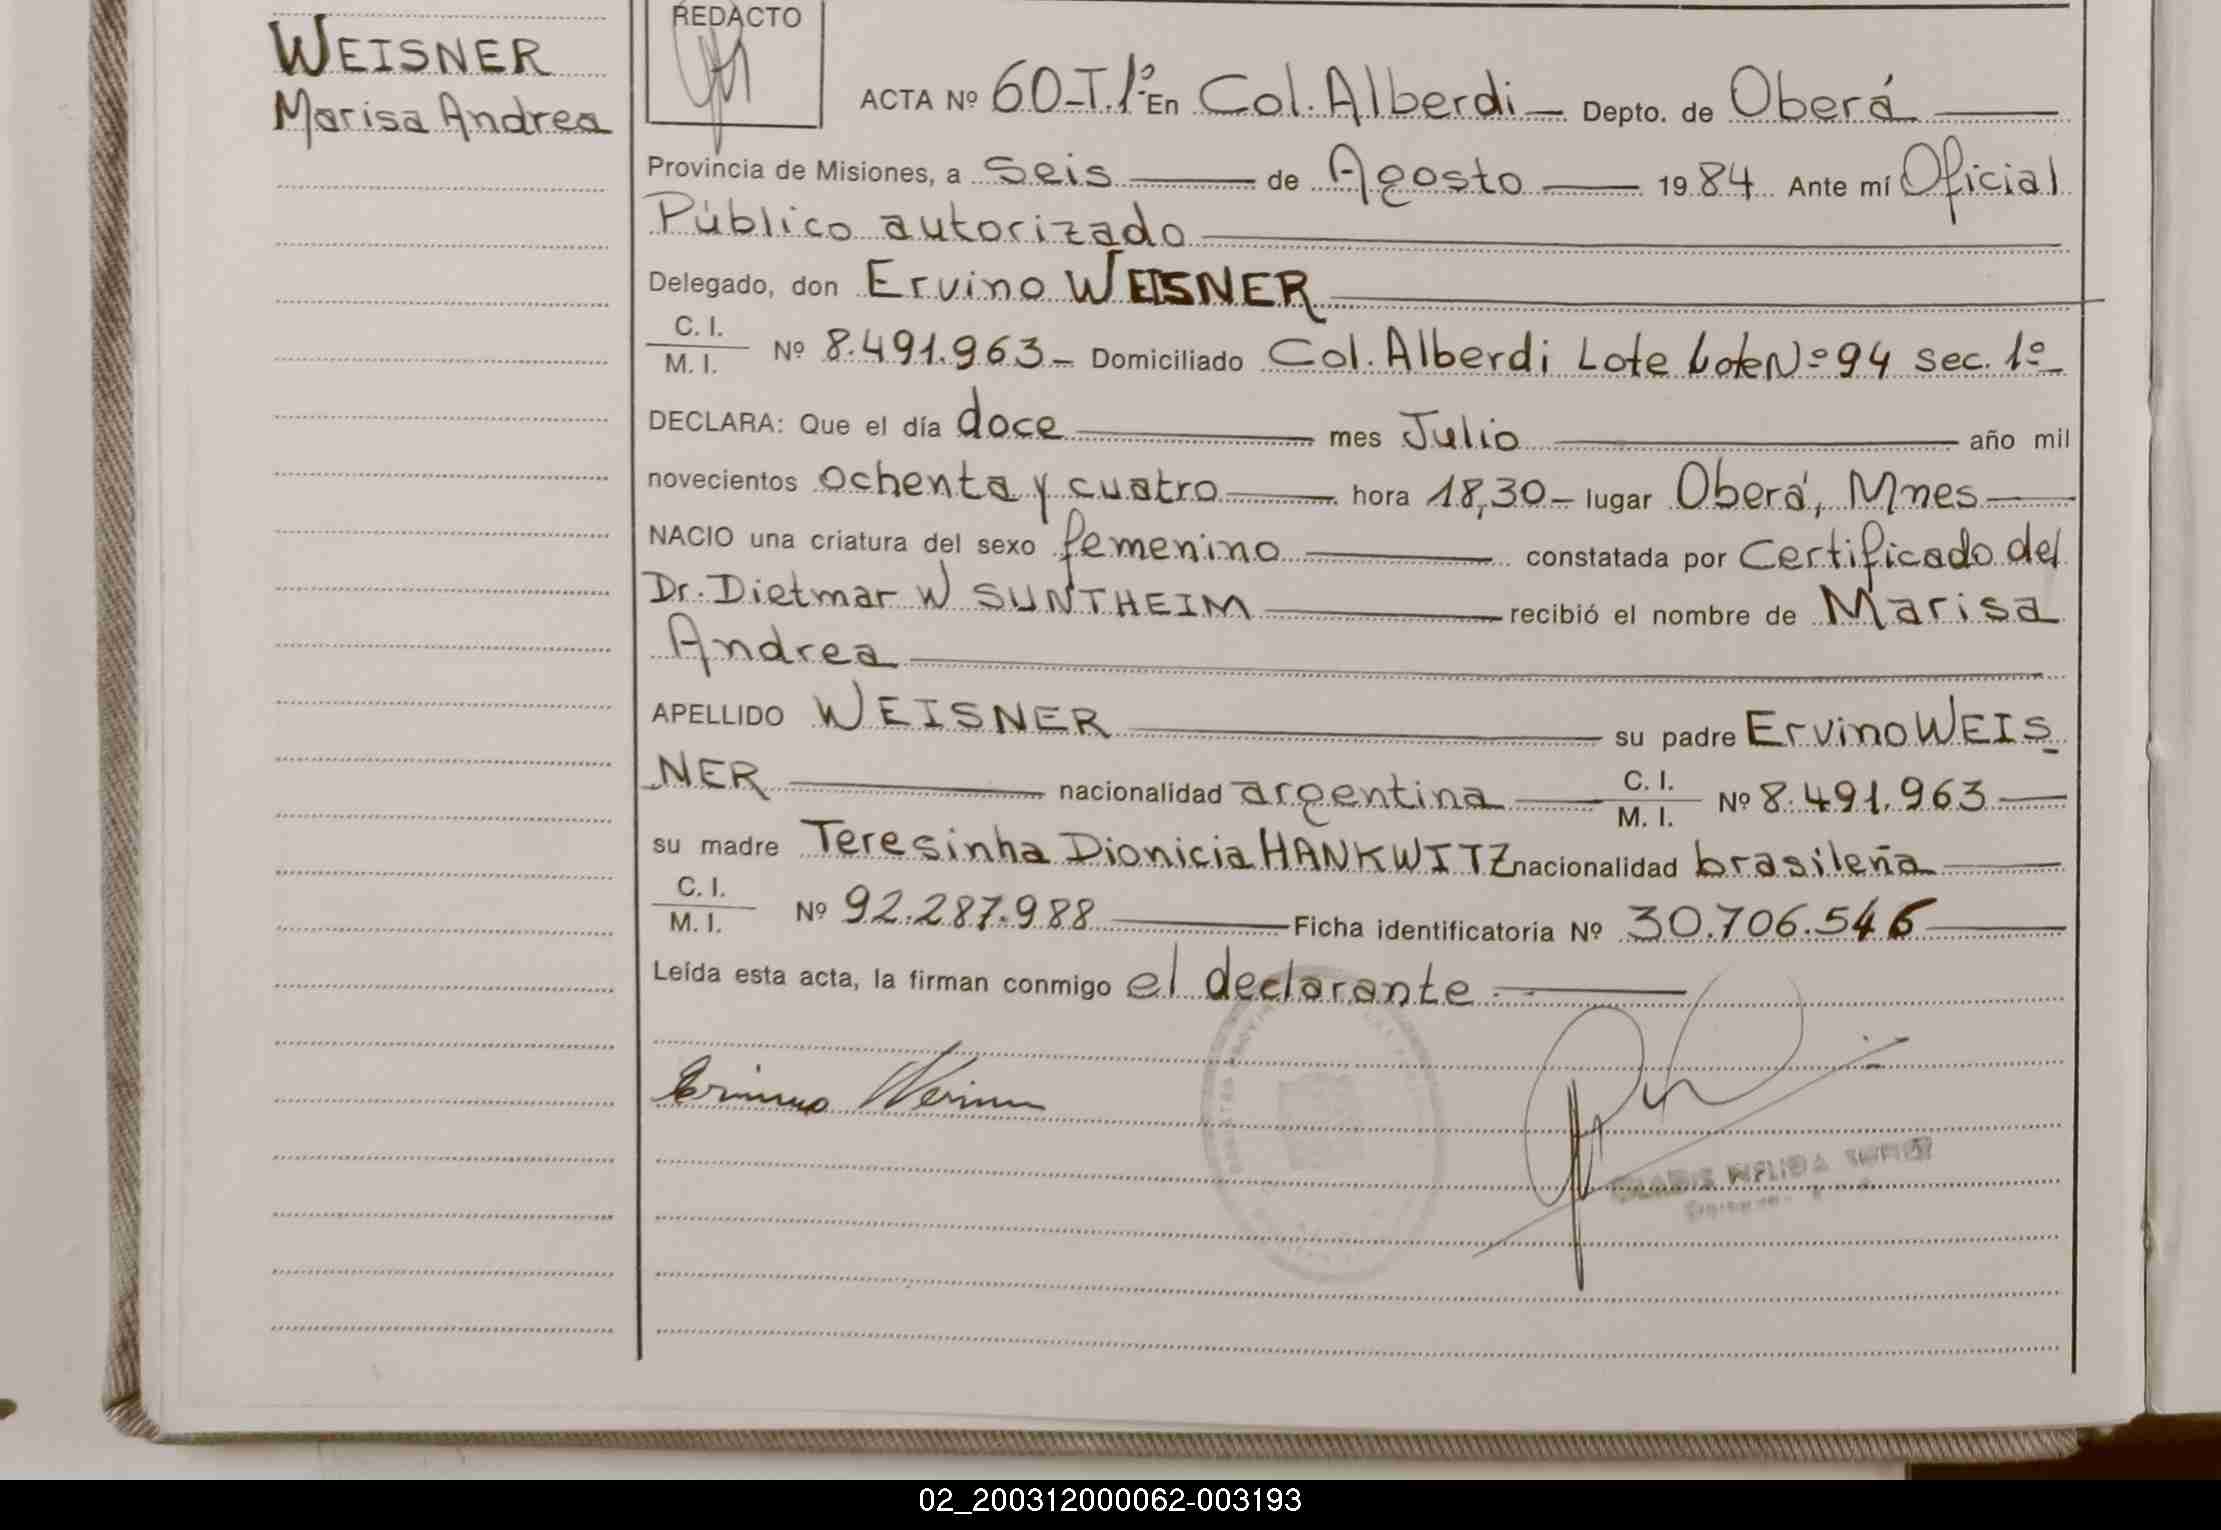 WEISNER
Marisa Andrea
REDACTO
ACTA Nº 60-T.1º En Col. Alberdi — Depto. de Oberá
Provincia de Misiones, a Seis de Agosto 1984 Ante mí Oficial
Público autorizado
Delegado, don Ervino WEISNER
C. I.
M. I. Nº 8.491.963 - Domiciliado Col. Alberdi Lote Lote Nº 94 sec. 1º
DECLARA: Que el día doce mes Julio año mil
novecientos ochenta y cuatro hora 18,30 - lugar Oberá, Mnes
NACIO una criatura del sexo femenino constatada por Certificado del
Dr. Dietmar W SUNTHEIM recibió el nombre de Marisa
Andrea
APELLIDO WEISNER su padre Ervino WEIS
NER nacionalidad argentina C. I. M. I. Nº 8.491.963
su madre Teresinha Dionicia HANKWITZ nacionalidad brasileña
C. I.
M. I. Nº 92.287.988 Ficha identificatoria Nº 30.706.546
Leída esta acta, la firman conmigo el declarante
02_200312000062-003193